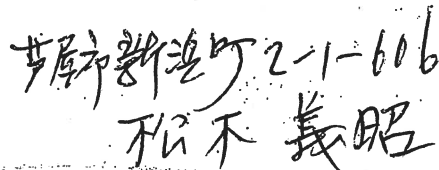 芦屋市新浜町2-1-606
松木 義昭